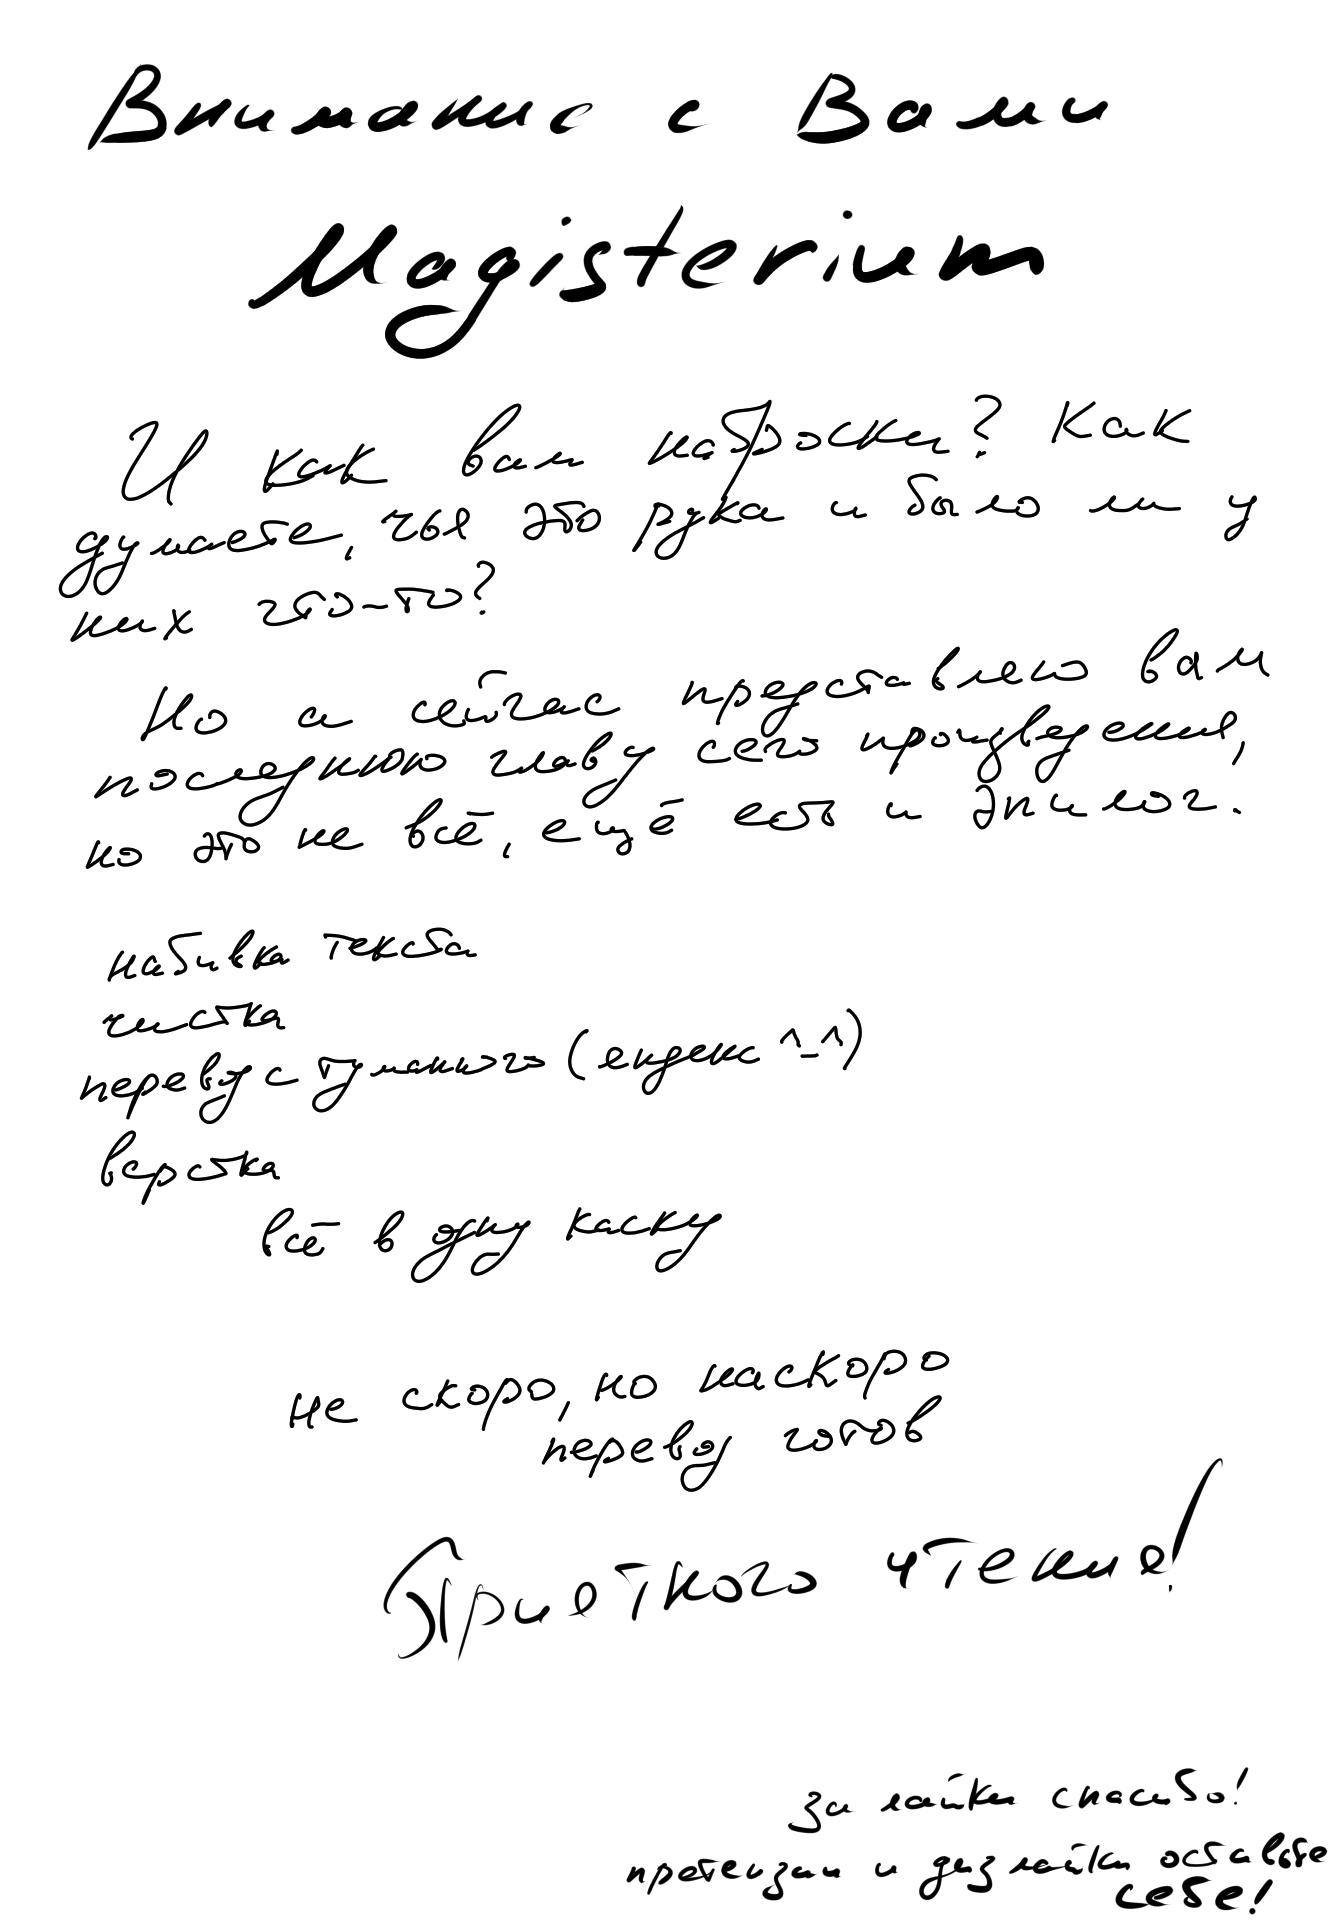 Внимание с Вами
Magisterium
И как вам наброски? Как
думаете, чья это рука и было ли у
них что-то?
Но а сейчас представлено вам
последнюю главу сего произведения,
но это не всё, ещё есть и эпилог.
набивка текста
чистка
перевод с туманного (ендекс ^_^)
верстка
всё в одну каску
не скоро, но наскоро
перевод готов
Приетного чтение!
за лайки спасибо!
претензии и дизлайки оставьте
себе!